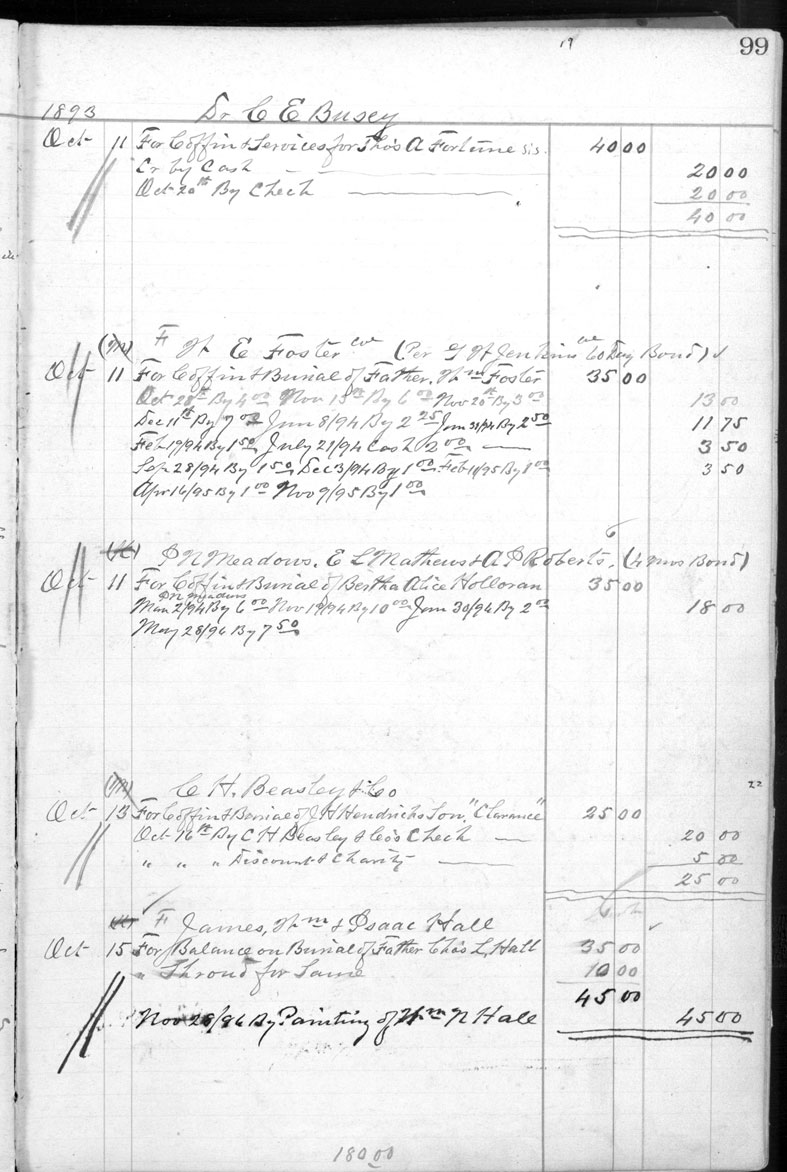 19
99
1893 Dr C E Busey
Oct 11 For Coffin & Services for Tho's A Fortune sis. 40 00
Cr by Cash 20 00
Oct 20th By Check 20 00
40 00
F W E Foster (Per G W Jenkins 60 Day Bond)
Oct 11 For Coffin & Burial of Father, Wm Foster 35 00
Oct 28th By 4 00 Nov 13th By 6 00 Nov 20th By 3 00 13 00
Dec 11th By 7 00 Jan 8/94 By 2 25 Jan 31/94 By 2 50 11 75
Feb 19/94 By 1 50 July 21/94 Cash 2 00 3 50
Sep 28/94 By 1 50 Dec 3/94 By 1 00 Feb 11/95 By 1 00 3 50
Apr 16/95 By 1 00 Nov 9/95 By 1 00
(H) P N Meadows, E L Mathews & A P Roberts, (4 mos Bond)
Oct 11 For Coffin & Burial of Bertha Alice Holloran 35 00
P N Meadows
Mar 2/94 By 6 00 Nov 19/94 By 10 00 Jan 30/96 By 2 00 18 00
May 28/96 By 7 50
C H. Beasley & Co
22
Oct 13 For Coffin & Burial of J H Hendricks Son, "Clarance" 25 00
Oct 16th By C H Beasley & Co's Check 20 00
" " " Discount & Charity 5 00
25 00
F James, Wm & Isaac Hall
Oct 15 For Balance on Burial of Father Cha's L, Hall 35 00
" Shroud for Same 10 00
45 00
Nov 28/96 By Painting of Wm N Hall 45 00
180 00